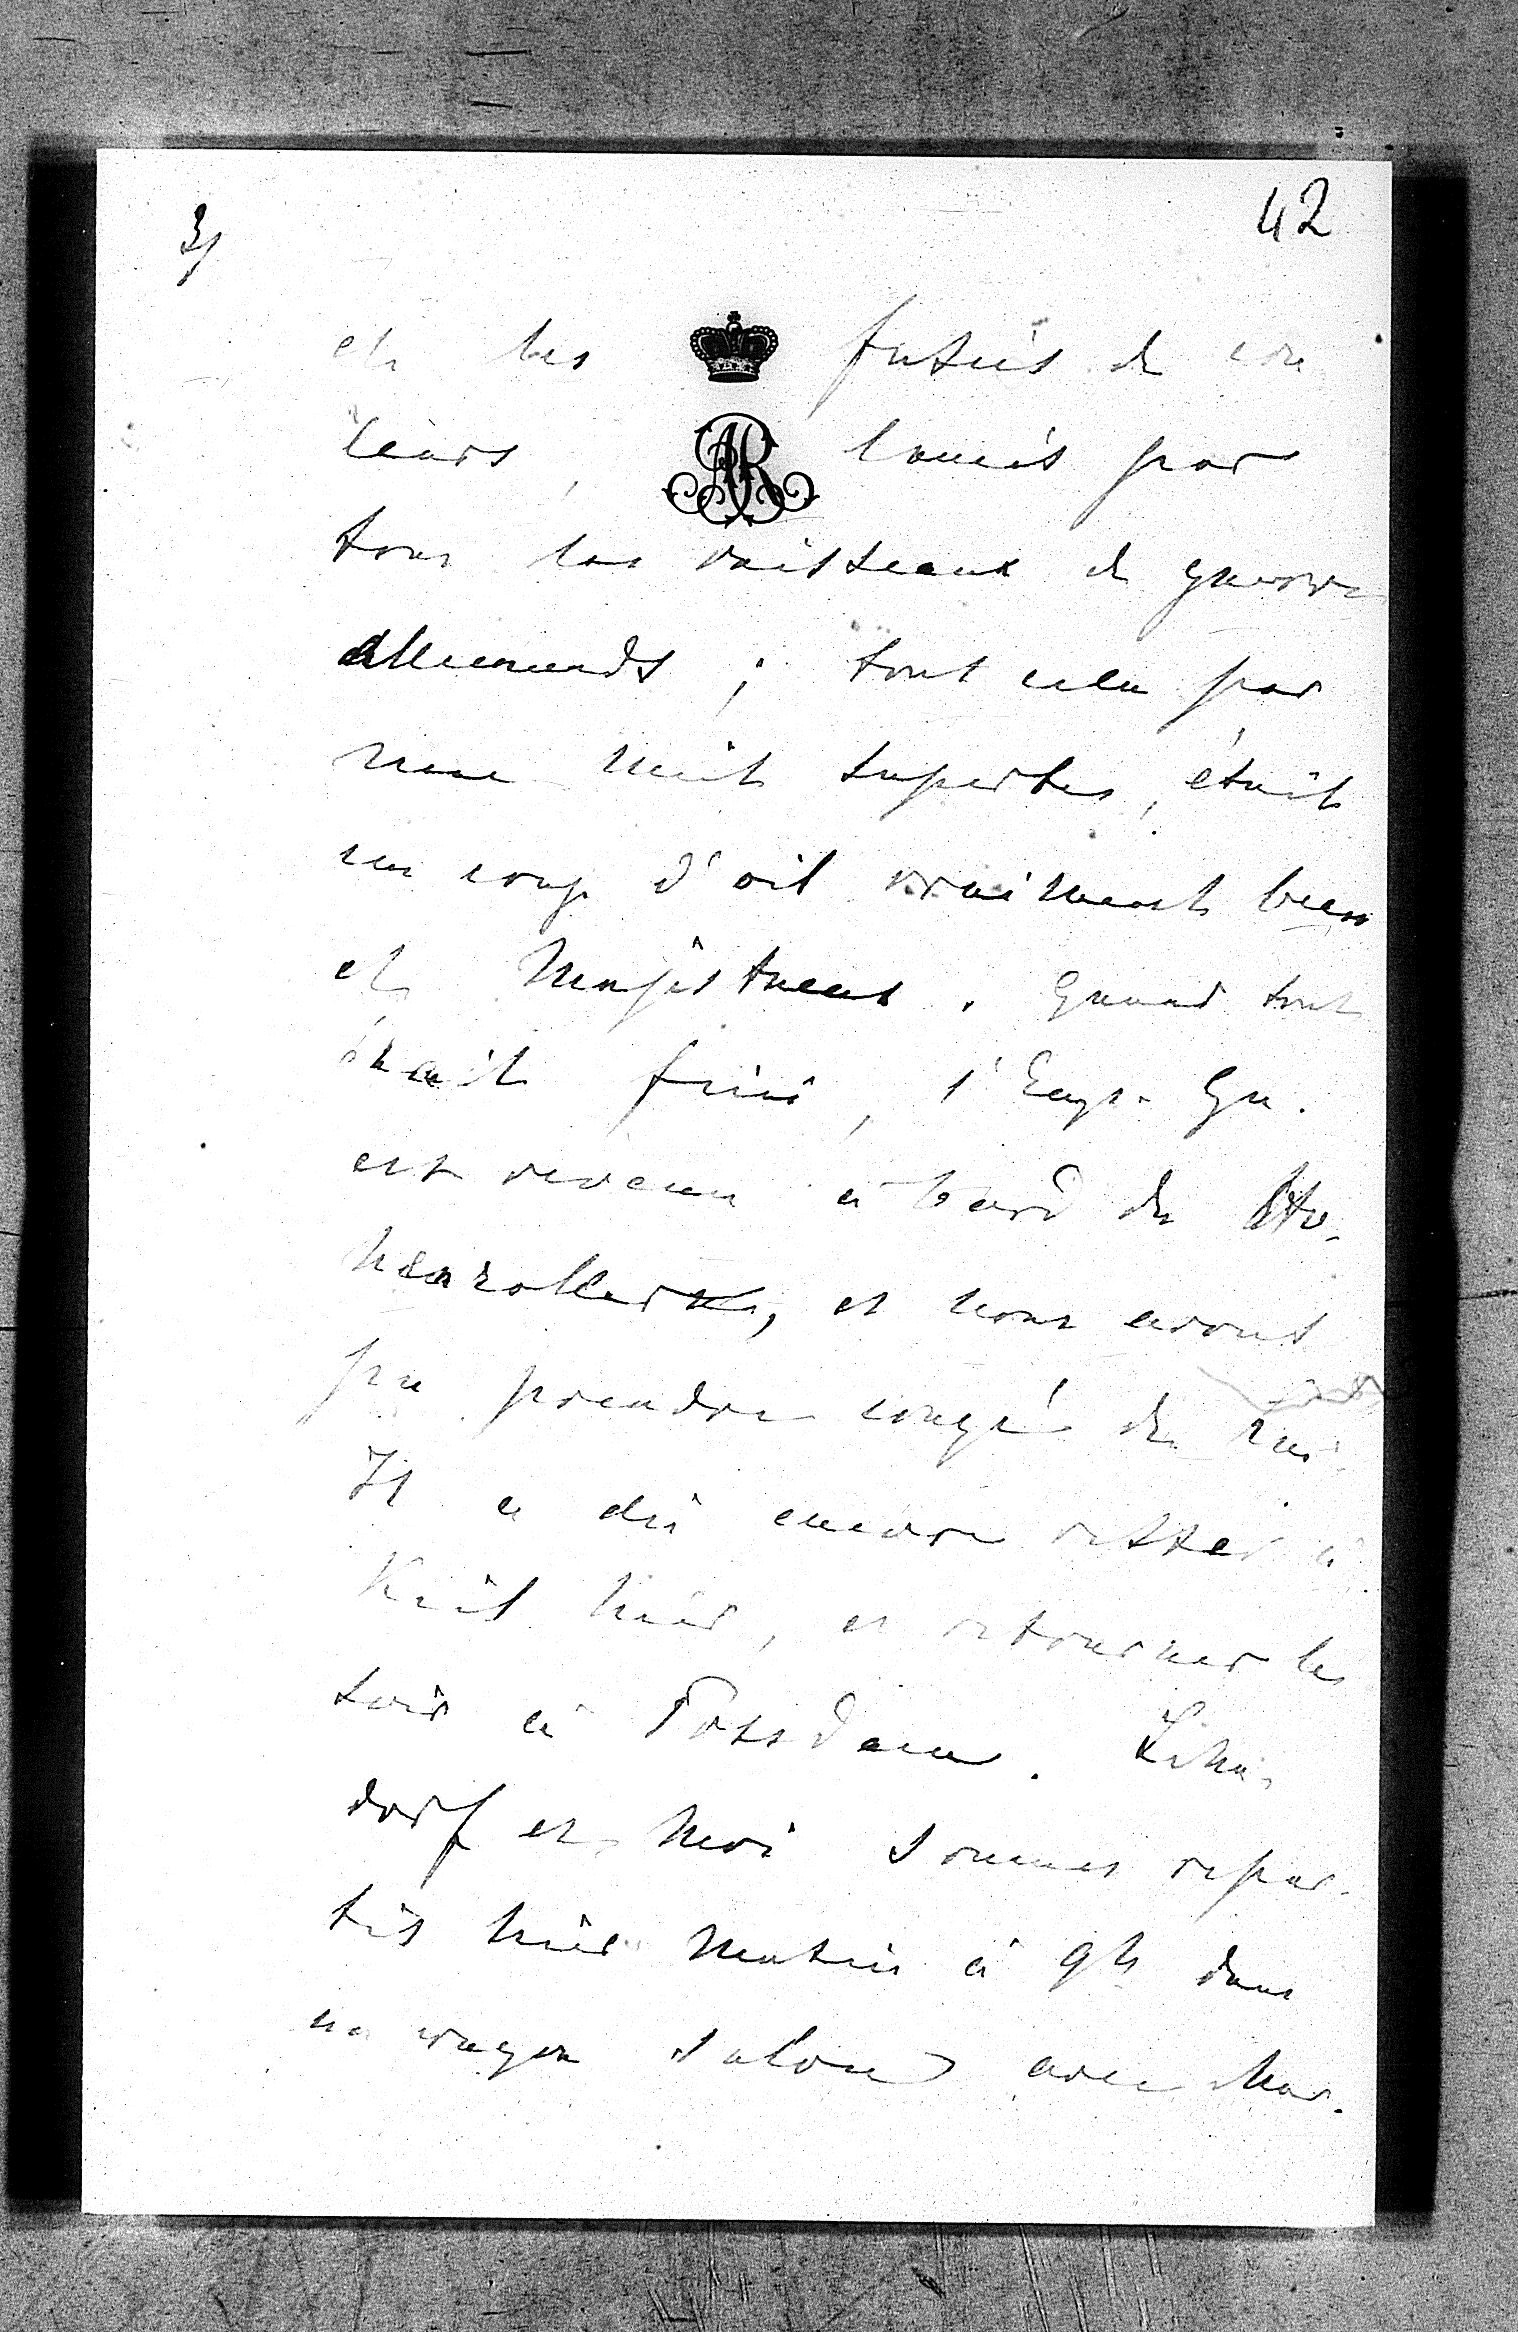 3/
42
et les fusées de cou
leurs, lancées par
tous les vaisseaux de guerre
allemands ; tout cela par
une nuit superbe, était
un coup d'oeil vraiment beau
et majestueux. Quand tout
était fini, l'Emp. Gu.
est revenu à bord du Ho-
henzollern, et nous avons
pu prendre congé de lui.
Il a dû encore rester à
Kiel hier, et retourner le
soir à Potsdam.
dorf et moi sommes repar-
tis hier matin à 9h dans
un wagon salon avec Mar-